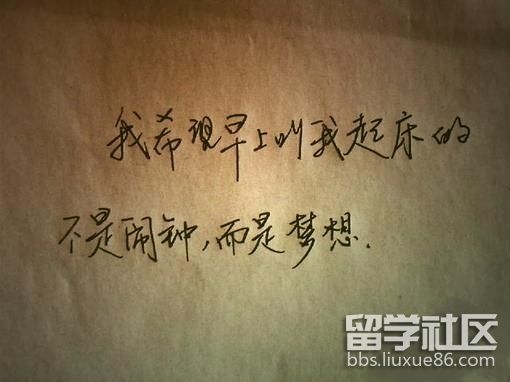 我希现早上叫我起床的
不是闹钟,而是梦想.
留学社区
bbs.liuxue86.com